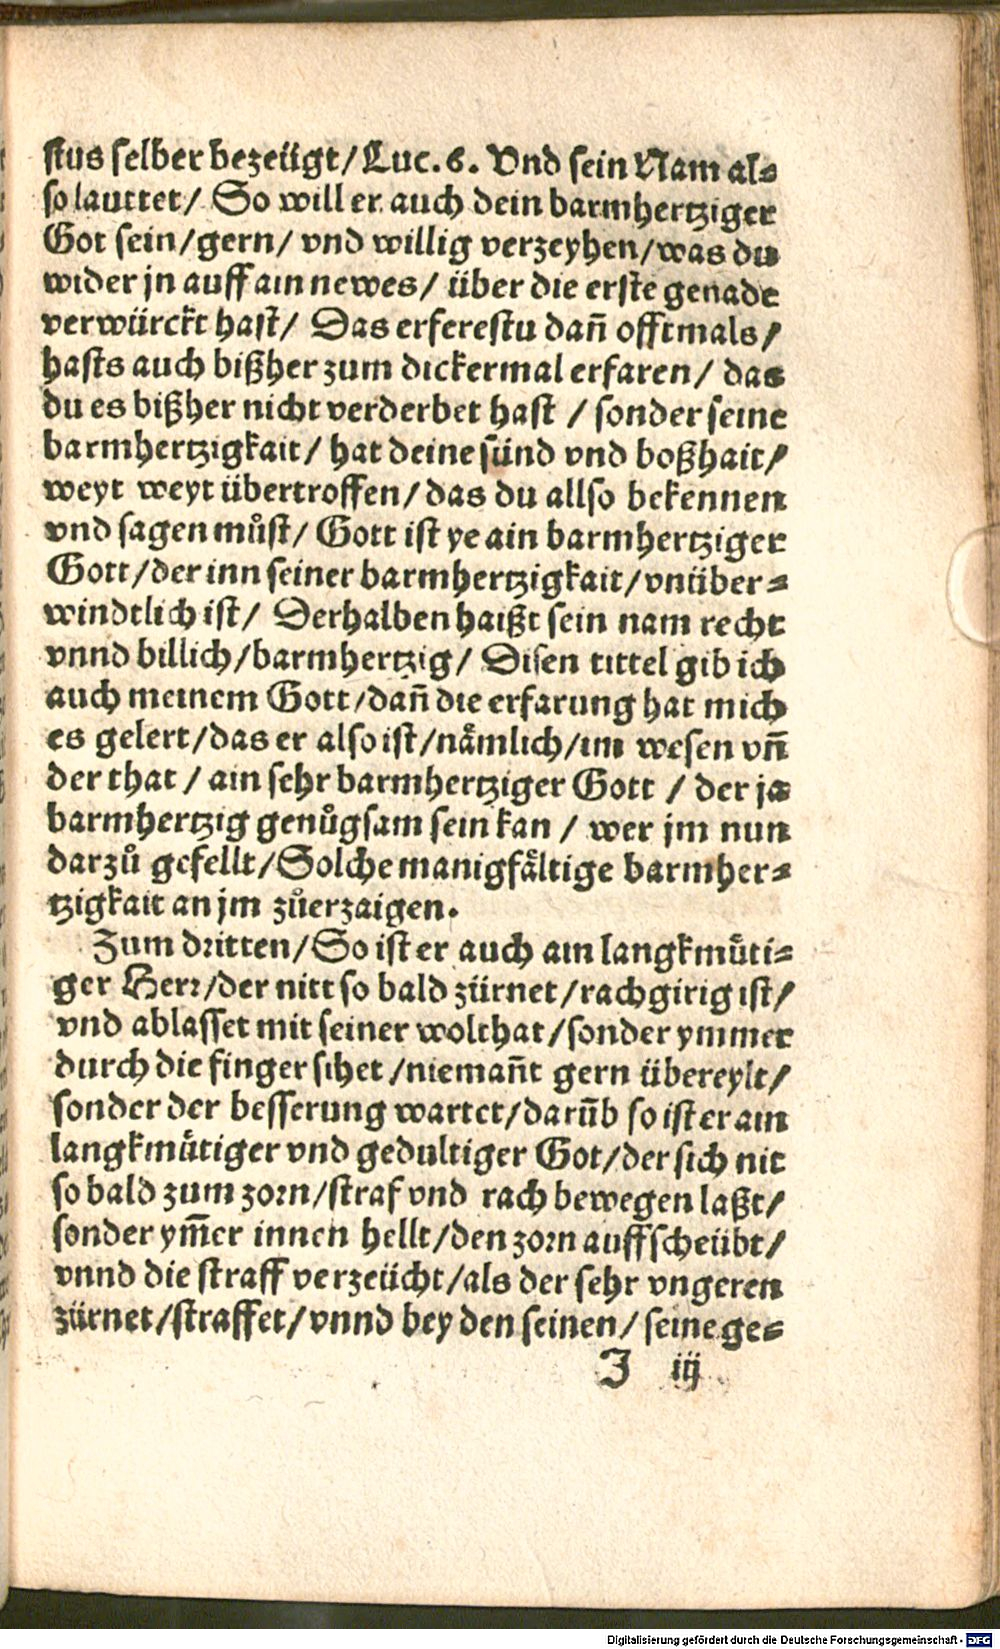 stus selber bezeügt/ Luc. 6. Vnd sein Nam al=
so lauttet/ So will er auch dein barmhertziger
Got sein/gern/ vnd willig verzeyhen/was du
wider jn auff ain newes/ über die erste genade
verwürckt hast/ Das erferestu dañ offtmals/
hasts auch bißher zum dickermal erfaren/ das
du es bißher nicht verderbet hast / sonder seine
barmhertzigkait/ hat deine sünd vnd boßhait/
weyt weyt übertroffen/das du allso bekennen
vnd sagen můst/ Gott ist ye ain barmhertziger
Gott/der inn seiner barmhertzigkait/vnüber=
windtlich ist/ Derhalben haißt sein nam recht
vnnd billich/barmhertzig/ Disen tittel gib ich
auch meinem Gott/dañ die erfarung hat mich
es gelert/das er also ist/nåmlich/im wesen vñ
der that / ain sehr barmhertziger Gott / der ja
barmhertzig genůgsam sein kan / wer jm nun
darzů gefellt/Solche manigfåltige barmher=
tzigkait an jm zůerzaigen.
Zum dritten/So ist er auch ain langkmůti=
ger Herr/der nitt so bald zürnet/rachgirig ist/
vnd ablasset mit seiner wolthat/sonder ymmer
durch die finger sihet/niemañt gern übereylt/
sonder der besserung wartet/darūb so ist er ain
langkmůtiger vnd gedultiger Got/der sich nit
so bald zum zorn/straf vnd rach bewegen laßt/
sonder ym̃er innen hellt/den zorn auffscheübt/
vnnd die straff verzeücht/als der sehr vngeren
zürnet/straffet/vnnd bey den seinen/ seine ge=
J iij
Digitalisierung gefördert durch die Deutsche Forschungsgemeinschaft - DFG